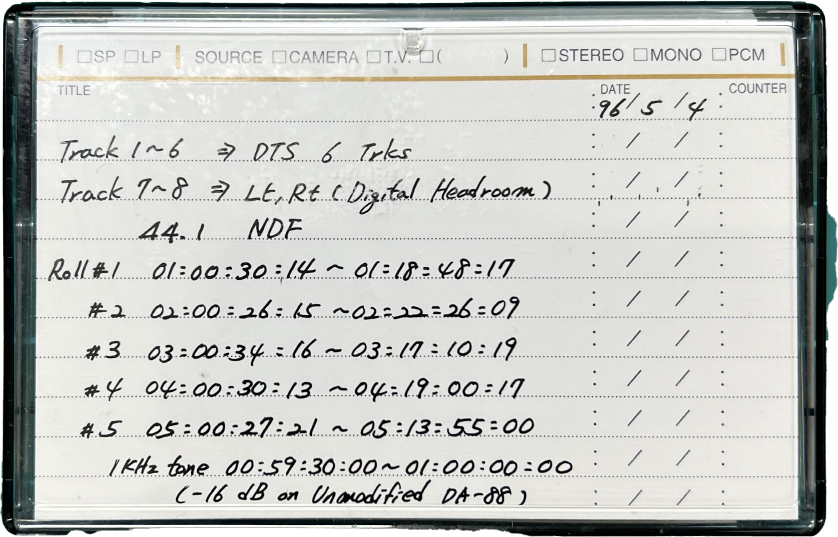 □SP □LP SOURCE □CAMERA □T.V. □( ) □STEREO □MONO □PCM
TITLE DATE COUNTER
96/5/4
Track 1~6 ⇒ DTS 6 Trks
Track 7~8 ⇒ Lt, Rt (Digital Headroom)
44.1 NDF
Roll #1 01:00:30:14 ~ 01:18:48:17
#2 02:00:26:15 ~02:22:26:09
#3 03:00:34:16 ~ 03:17:10:19
#4 04:00:30:13 ~04:19:00:17
#5 05:00:27:21 ~ 05:13:55:00
1KHz tone 00:59:30:00~01:00:00:00
(-16 dB on Unmodified DA-88)